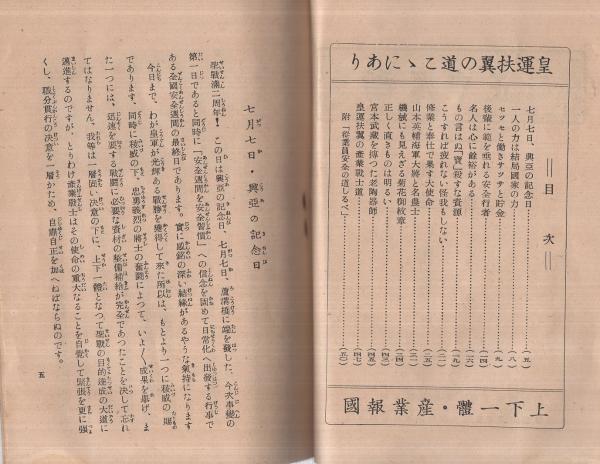 皇運扶翼の道こゝにあり
目次
七月七日、興亞の記念日……(五)
一人の力は結局國家の力……(八)
セッセと働きサッサと貯金……(九)
後輩に範を垂れる安全行者……(一四)
名人は心に餘裕がある……(一六)
もの言はぬ『寶』殺すな資源……(一九)
こうすれば疲れない怪我もしない……(二一)
修業と奉仕で果す大使命……(二五)
山本英輔海軍大將と名農士……(三四)
機械にも見えざる菊花御紋章……(四一)
正しく直きものは明るい……(四三)
宮本武藏を搏つた老陶器師……(四五)
皇運扶翼の產業戰士道……(四七)
附「從業員安全の道しるべ」……(五〇)
上下一體・產業報國
七月七日・興亞の記念日
聖戰滿二周年！この日は興亞の記念日、七月七日、蘆溝橋に端を發した、今次事變の
第一日であると同時に「安全週間を安全習慣」への信念を固めて日常化へ出發する行事で
ある全國安全週間の最終日であります。實に感銘の深い結緣があるやうな氣持になります
今日まで、わが皇軍が光輝ある戰勝を獲得して來た所以は、もとより一つに稜威の賜
であります。同時に稜威の下、忠勇義烈の將士の奮鬪によつて、いよ〳〵成果を擧げ、ま
た一つには、迅速を要する戰鬪に必要な資材の整備補給が完全であつたことを決して忘れ
てはなりません。我等は一層固い決意の下に、上下一體となつて聖戰の目的達成の大道に
邁進するのですが、とりわけ產業戰士はその使命の重大なることを自覺して緊張を更に强
くし、職分奉行の決意を一層かため、自肅自正を加へねばならぬのです。
五